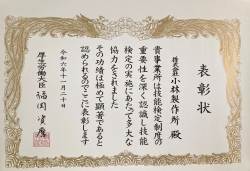 表彰状
株式会社小林製作所 殿
貴事業所は技能検定制度の
重要性を深く認識し技能
検定の実施にあたって多大な
協力をされました
その功績は極めて顕著であると
認められるのでここに表彰します
令和六年十一月二十日
厚生労働大臣
福岡資麿